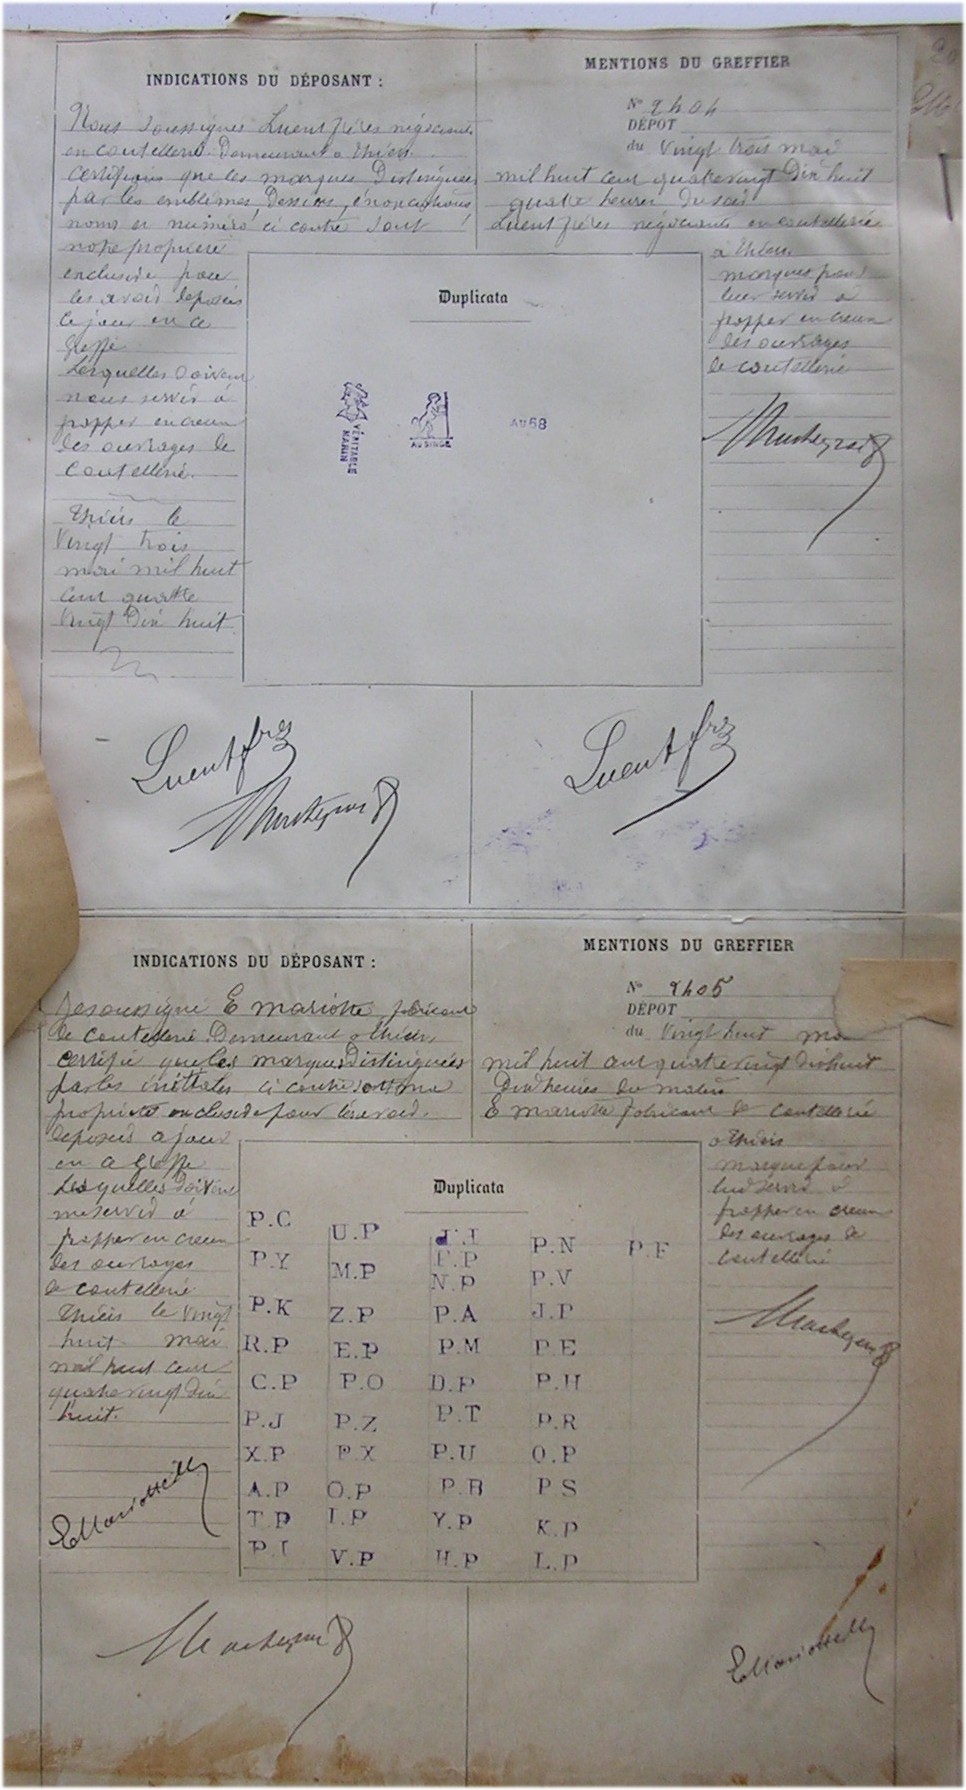 INDICATIONS DU DÉPOSANT :
Nous soussignés Luent frères négociants
en coutellerie Demeurant a Thiers
Certifions que les marques Distinguées
par les emblèmes, Dessins, énonciations
noms et numéro ci contre sont
notre propriété
exclusive pour
les avoir déposés
ce jour en ce
greffe
Lesquelles doivent
nous servir à
frapper en creux
des ouvrages de
coutellerie.
Thiers le
Vingt trois
mai mil huit
cent quatre
Vingt Dix huit.
MENTIONS DU GREFFIER
N° 2404
DÉPOT
du Vingt trois mai
mil huit cent quatre vingt Dix huit
quatre heures du soir
Luent frères négociants en coutellerie
à Thiers
marques pour
leur servir à
frapper en creux
des ouvrages
de coutellerie
Duplicata
VÉRITABLE
NANIN
AU SINGE
AU 68
Luent frs
Luent frs
INDICATIONS DU DÉPOSANT :
Je soussigné E Mariotte fabricant
de coutellerie Demeurant a Thiers
certifie que les marques Distinguées
par les initiales ci contre sont ma
propriété exclusive pour les avoir
déposées ce jour
en ce greffe
Lesquelles doivent
me servir à
frapper en creux
des ouvrages
de coutellerie
Thiers le vingt
huit mai
mil huit cent
quatre vingt dix
huit.
MENTIONS DU GREFFIER
N° 2405
DÉPOT
du Vingt huit
mil huit cent quatre vingt dix huit
Dix heures du matin
E Mariotte fabricant de coutellerie
a Thiers
marque pour
lui servir à
frapper en creux
des ouvrages de
coutellerie
Duplicata
P.C U.P J.I P.N P.F
F.P
P.Y M.P N.P P.V
P.K Z.P P.A J.P
R.P E.P P.M P.E
C.P P.O D.P P.H
P.J P.Z P.T P.R
X.P P.X P.U Q.P
A.P O.P P.B P.S
T.P I.P Y.P K.P
P.I V.P H.P L.P